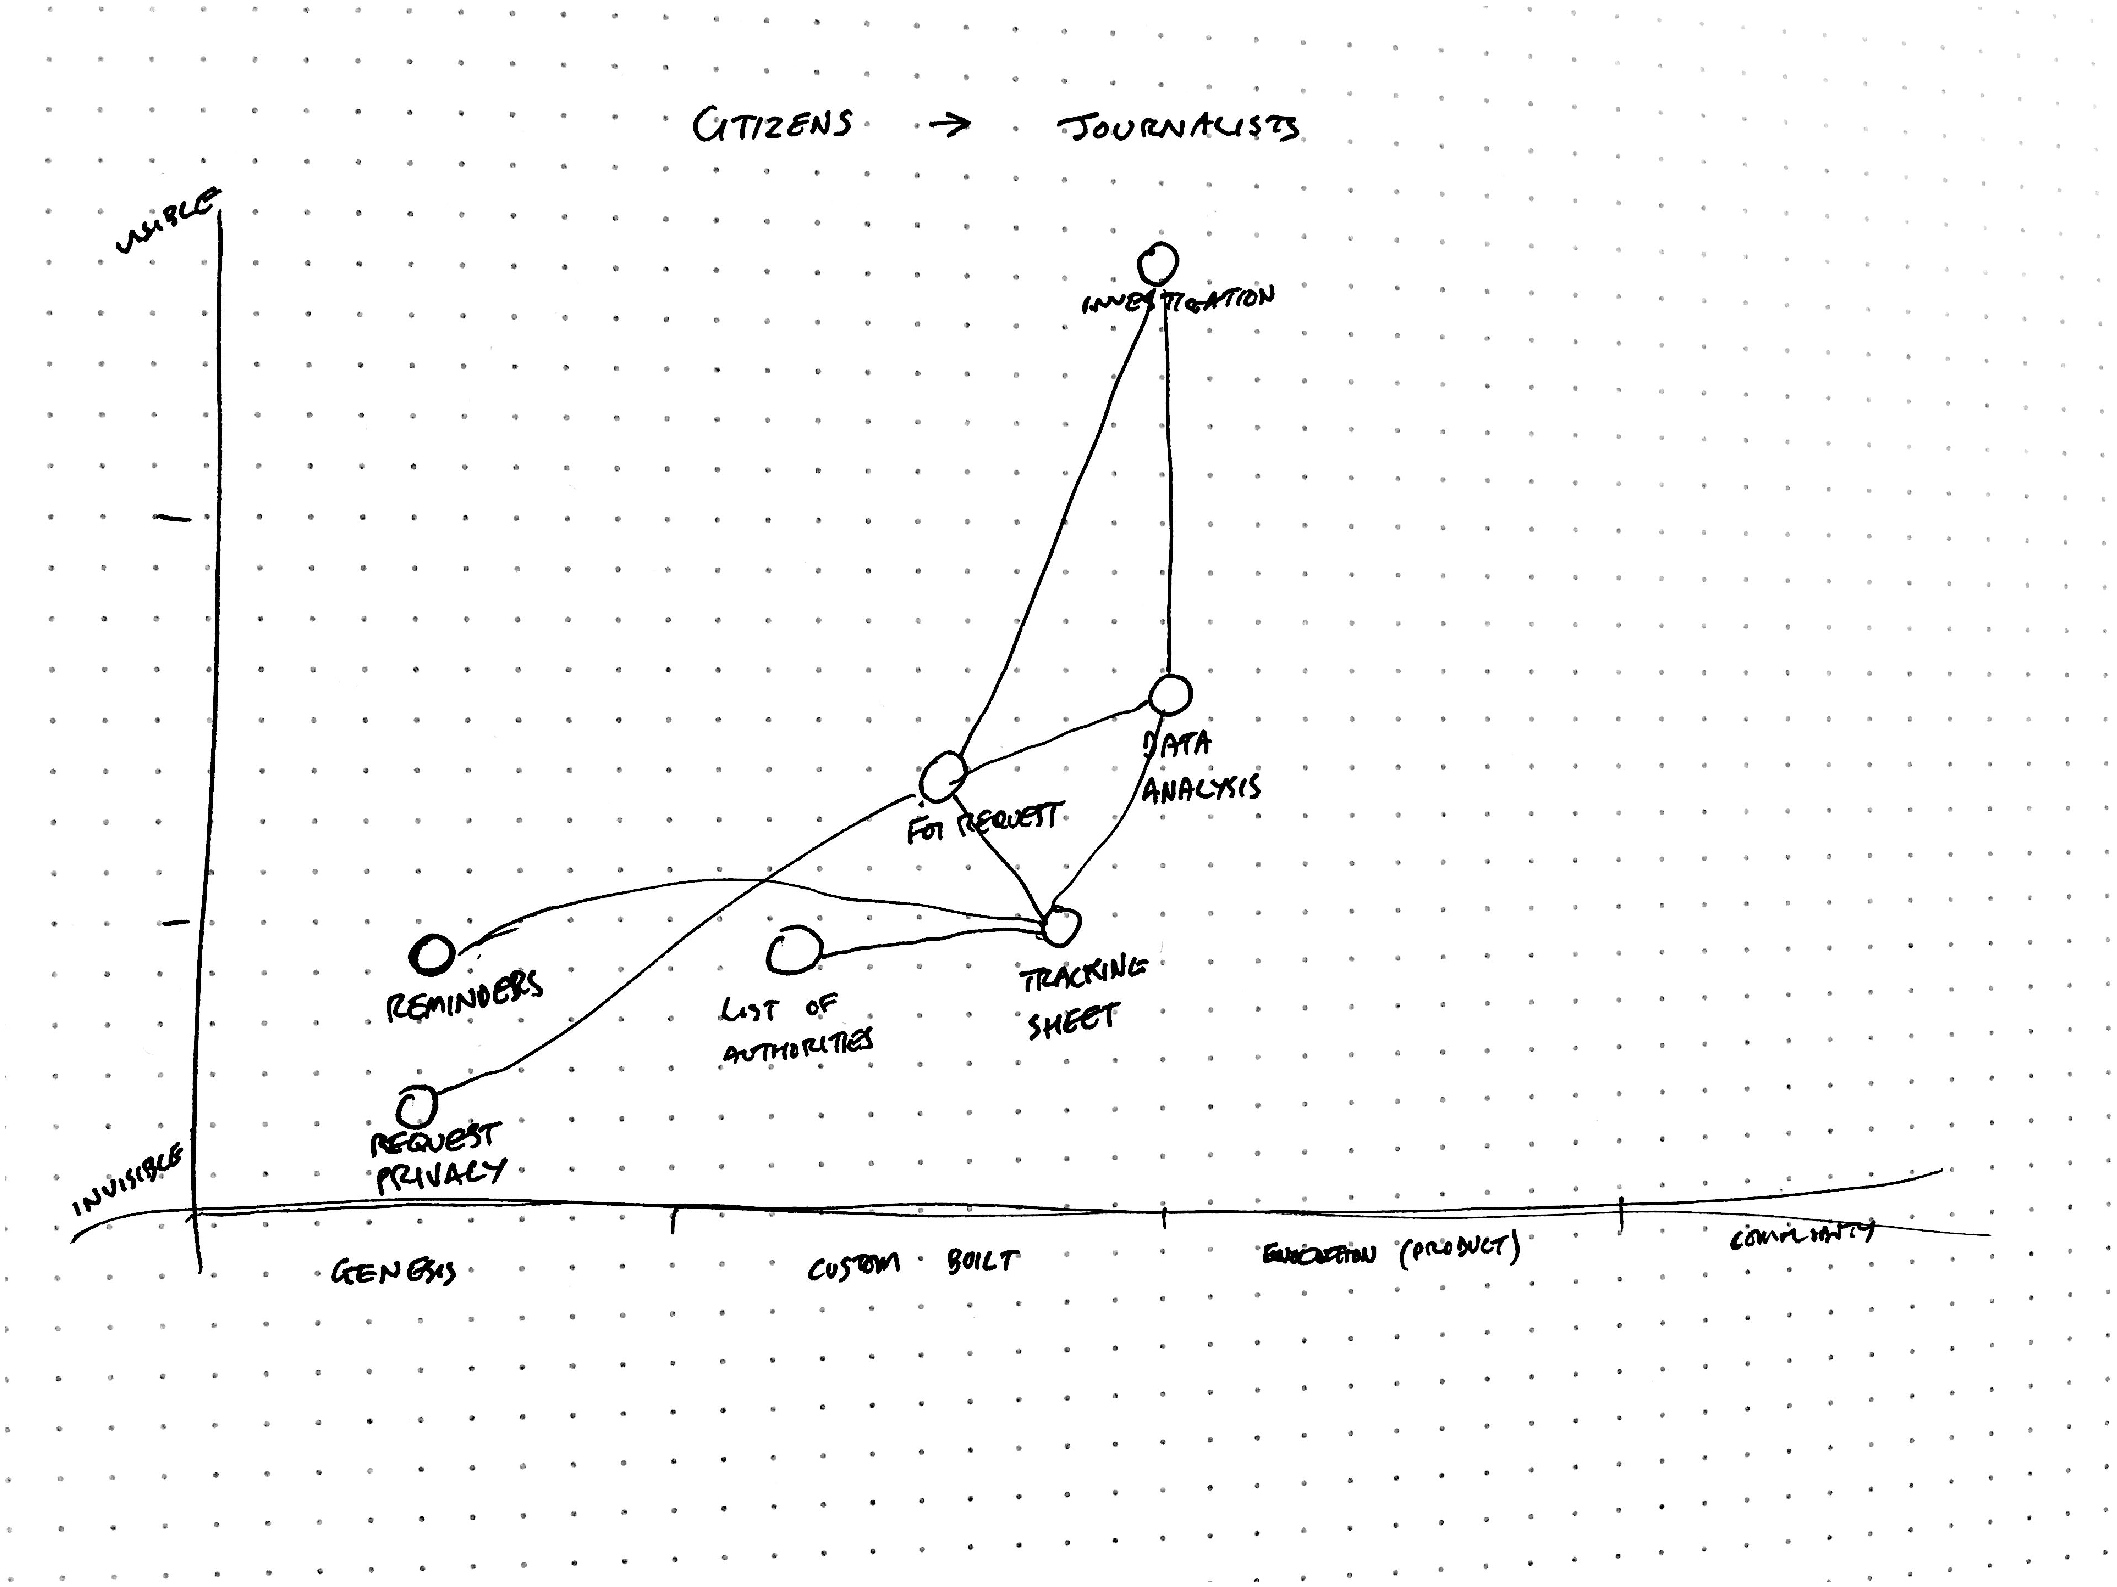 CITIZENS → JOURNALISTS
VISIBLE
INVESTIGATION
DATA
ANALYSIS
FOI REQUEST
REMINDERS
LIST OF
AUTHORITIES
TRACKING
SHEET
REQUEST
PRIVACY
INVISIBLE
GENESIS
CUSTOM BUILT
(PRODUCT)